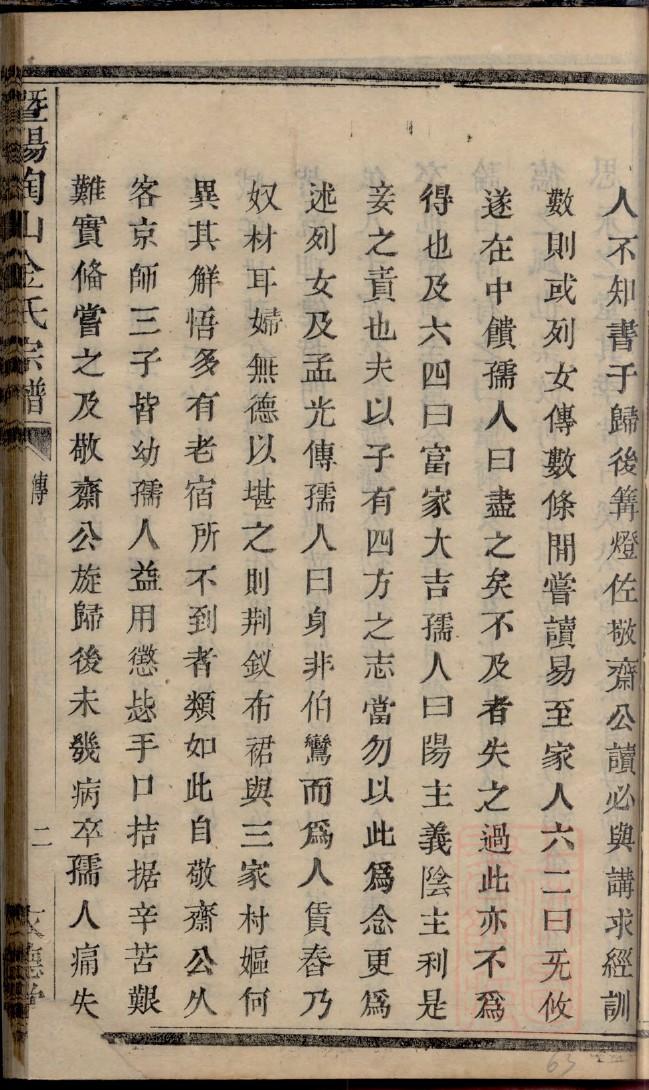 人不知書于歸後篝燈佐敬齋公讀必與講求經訓
數則或列女傳數條閒嘗讀易至家人六二曰旡攸
遂在中饋孺人曰盡之矣不及者失之過此亦不爲
得也及六四曰富家大吉孺人曰陽主義陰主利是
妾之責也夫以子有四方之志當勿以此爲念更爲
述列女及孟光傳孺人曰身非伯鸞而爲人賃舂乃
奴材耳婦無德以堪之則荆釵布裙與三家村嫗何
異其解悟多有老宿所不到者類如此自敬齋公久
客京師三子皆幼孺人益用懲毖手口拮据辛苦艱
難實俻嘗之及敬齋公旋歸後未幾病卒孺人痛失
暨陽陶山金氏宗譜
傳
二
文德堂
63